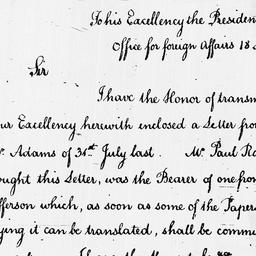 To his Excellency the Presiden
Office for foreign Affairs 18
Sir
I have the Honor of transm
ur Excellency herewith inclosed a Letter fro
r. Adams of 31st July last. Mr Paul Ra
ought this Letter, was the Bearer of one fro
fferson which, as soon as some of the Papers
ying it can be translated, shall be commu